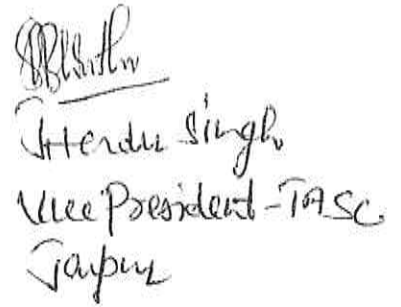 Jitendu Singh
Vice President-TASC
Jaipur